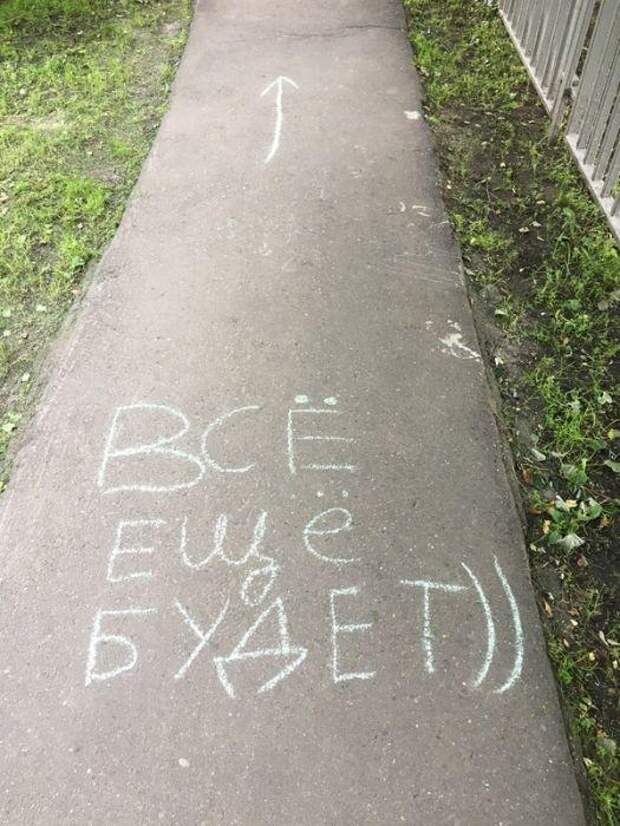 ВСЁ
ещё
БУДЕТ))